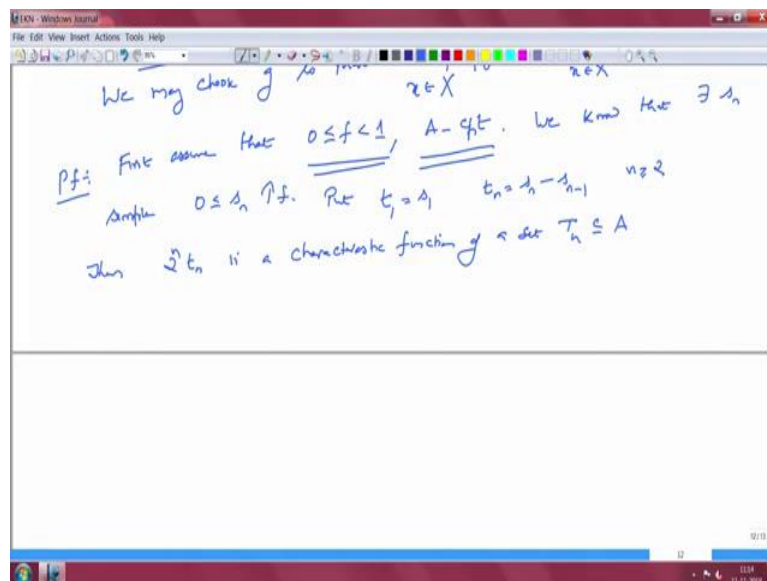 EKN - Windows Journal
File Edit View Insert Actions Tools Help
We may choose g so that
x ∈ X x ∈ X
Pf: First assume that 0 ≤ f < 1, A - cpt. We know that ∃ s_n
simple 0 ≤ s_n ↑ f. Put t_1 = s_1 t_n = s_n - s_{n-1} n ≥ 2
Then 2^n t_n is a characteristic function of a set T_n ⊆ A
12
12/13
11:14